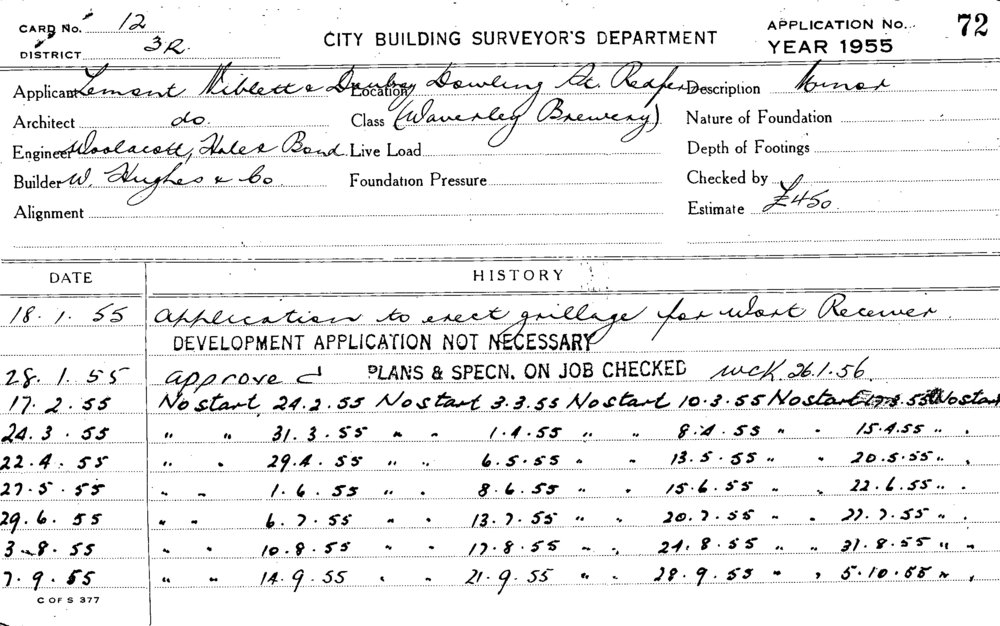 CARD No. 12
DISTRICT 3R.
CITY BUILDING SURVEYOR'S DEPARTMENT
APPLICATION No. 72
YEAR 1955
Applicant Lemont Niblett & Location Dowling St. Redfern Description Minor
Architect do. Class (Waverley Brewery) Nature of Foundation
Engineer Woolacott, Hales Bond. Live Load Depth of Footings
Builder W. Hughes & Co Foundation Pressure Checked by
Alignment Estimate £450.
DATE HISTORY
18. 1. 55 Application to erect grillage for Wort Receiver.
DEVELOPMENT APPLICATION NOT NECESSARY
28. 1. 55 approved PLANS & SPECN. ON JOB CHECKED WCK. 26.1.56.
17. 2. 55 No start 24.2.55 No start 3.3.55 No start 10.3.55 No start 17.3.55 No start
24. 3. 55 " " 31.3.55 " " 1.4.55 " " 8.4.55 " " 15.4.55 " "
22. 4. 55 " " 29.4.55 " " 6.5.55 " " 13.5.55 " " 20.5.55 " "
27. 5. 55 " " 1.6.55 " " 8.6.55 " " 15.6.55 " " 22.6.55 " "
29. 6. 55 " " 6.7.55 " " 13.7.55 " " 20.7.55 " " 27.7.55 " "
3. 8. 55 " " 10.8.55 " " 17.8.55 " " 24.8.55 " " 31.8.55 " "
7. 9. 55 " " 14.9.55 " " 21.9.55 " " 28.9.55 " " 5.10.55 " "
C OF S 377